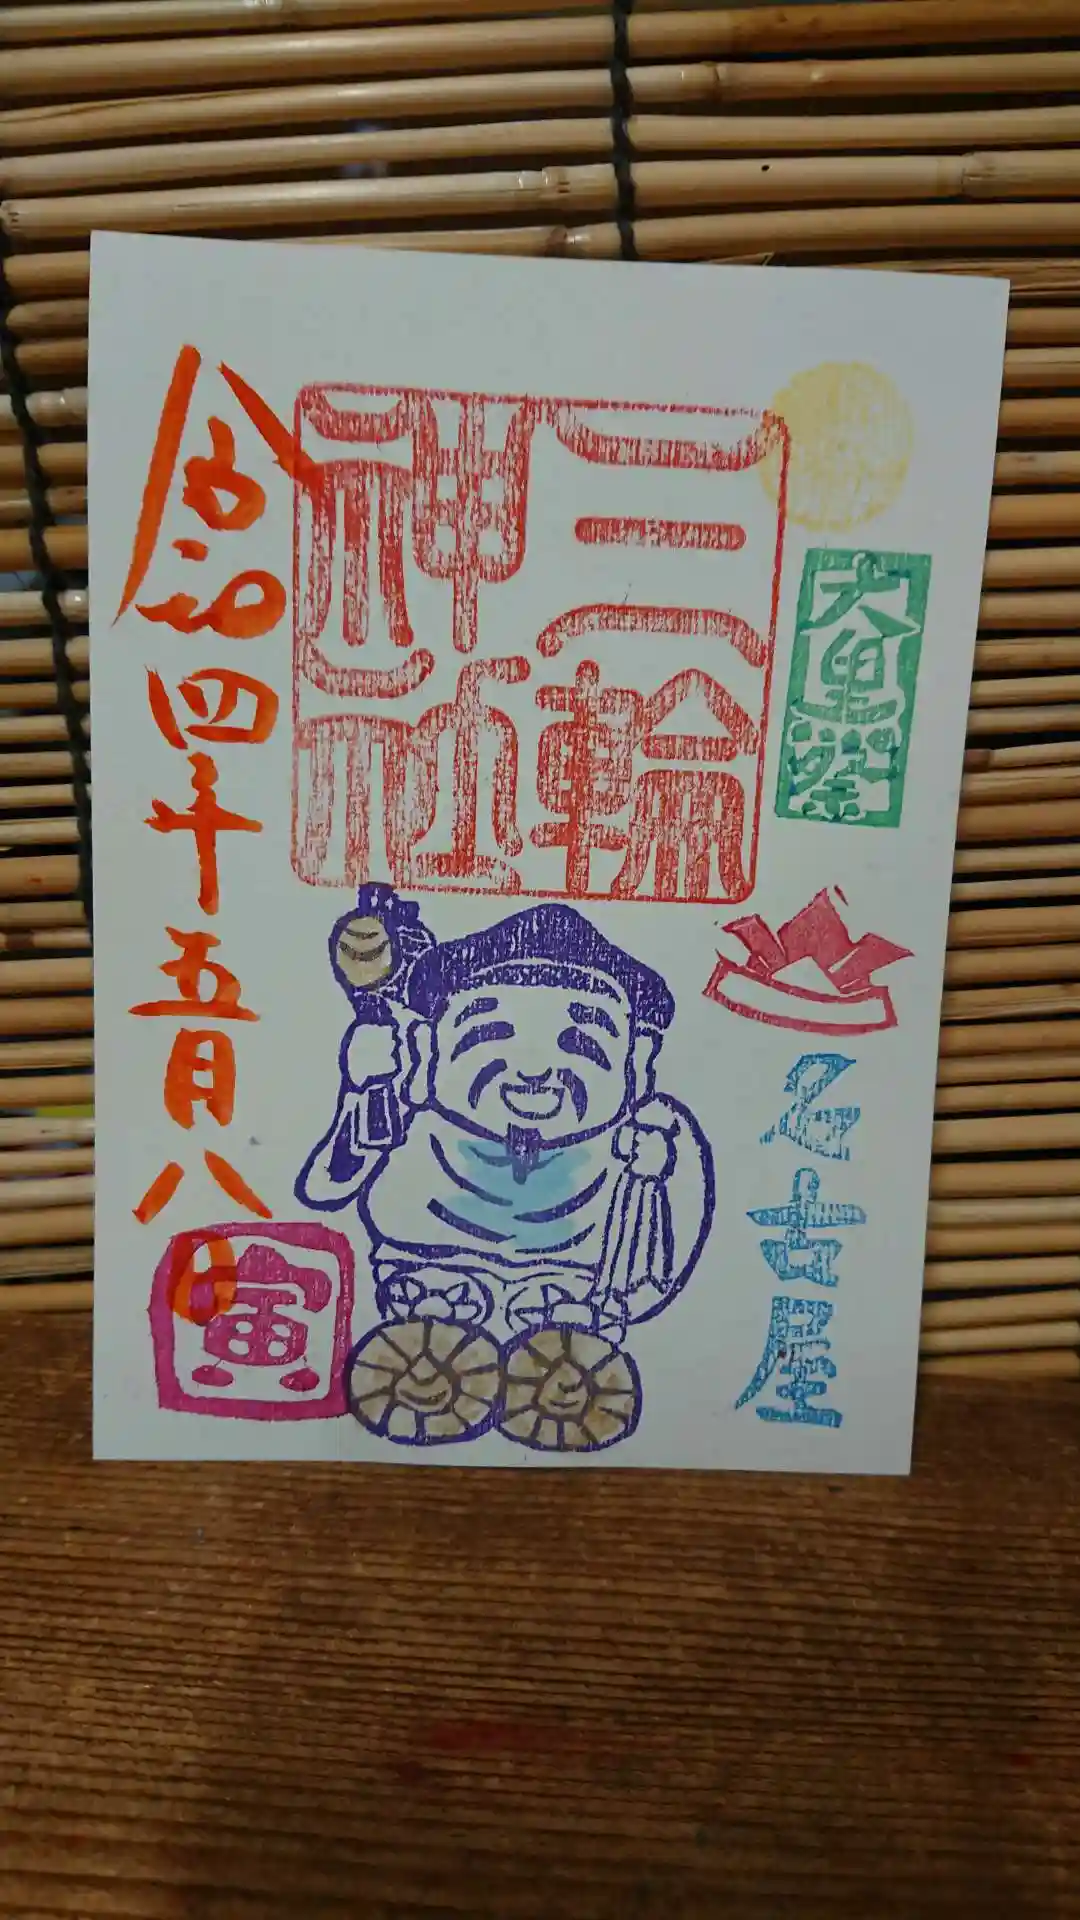 大黒祭
乙吉屋
三輪
神社
令和四年五月八日
寅